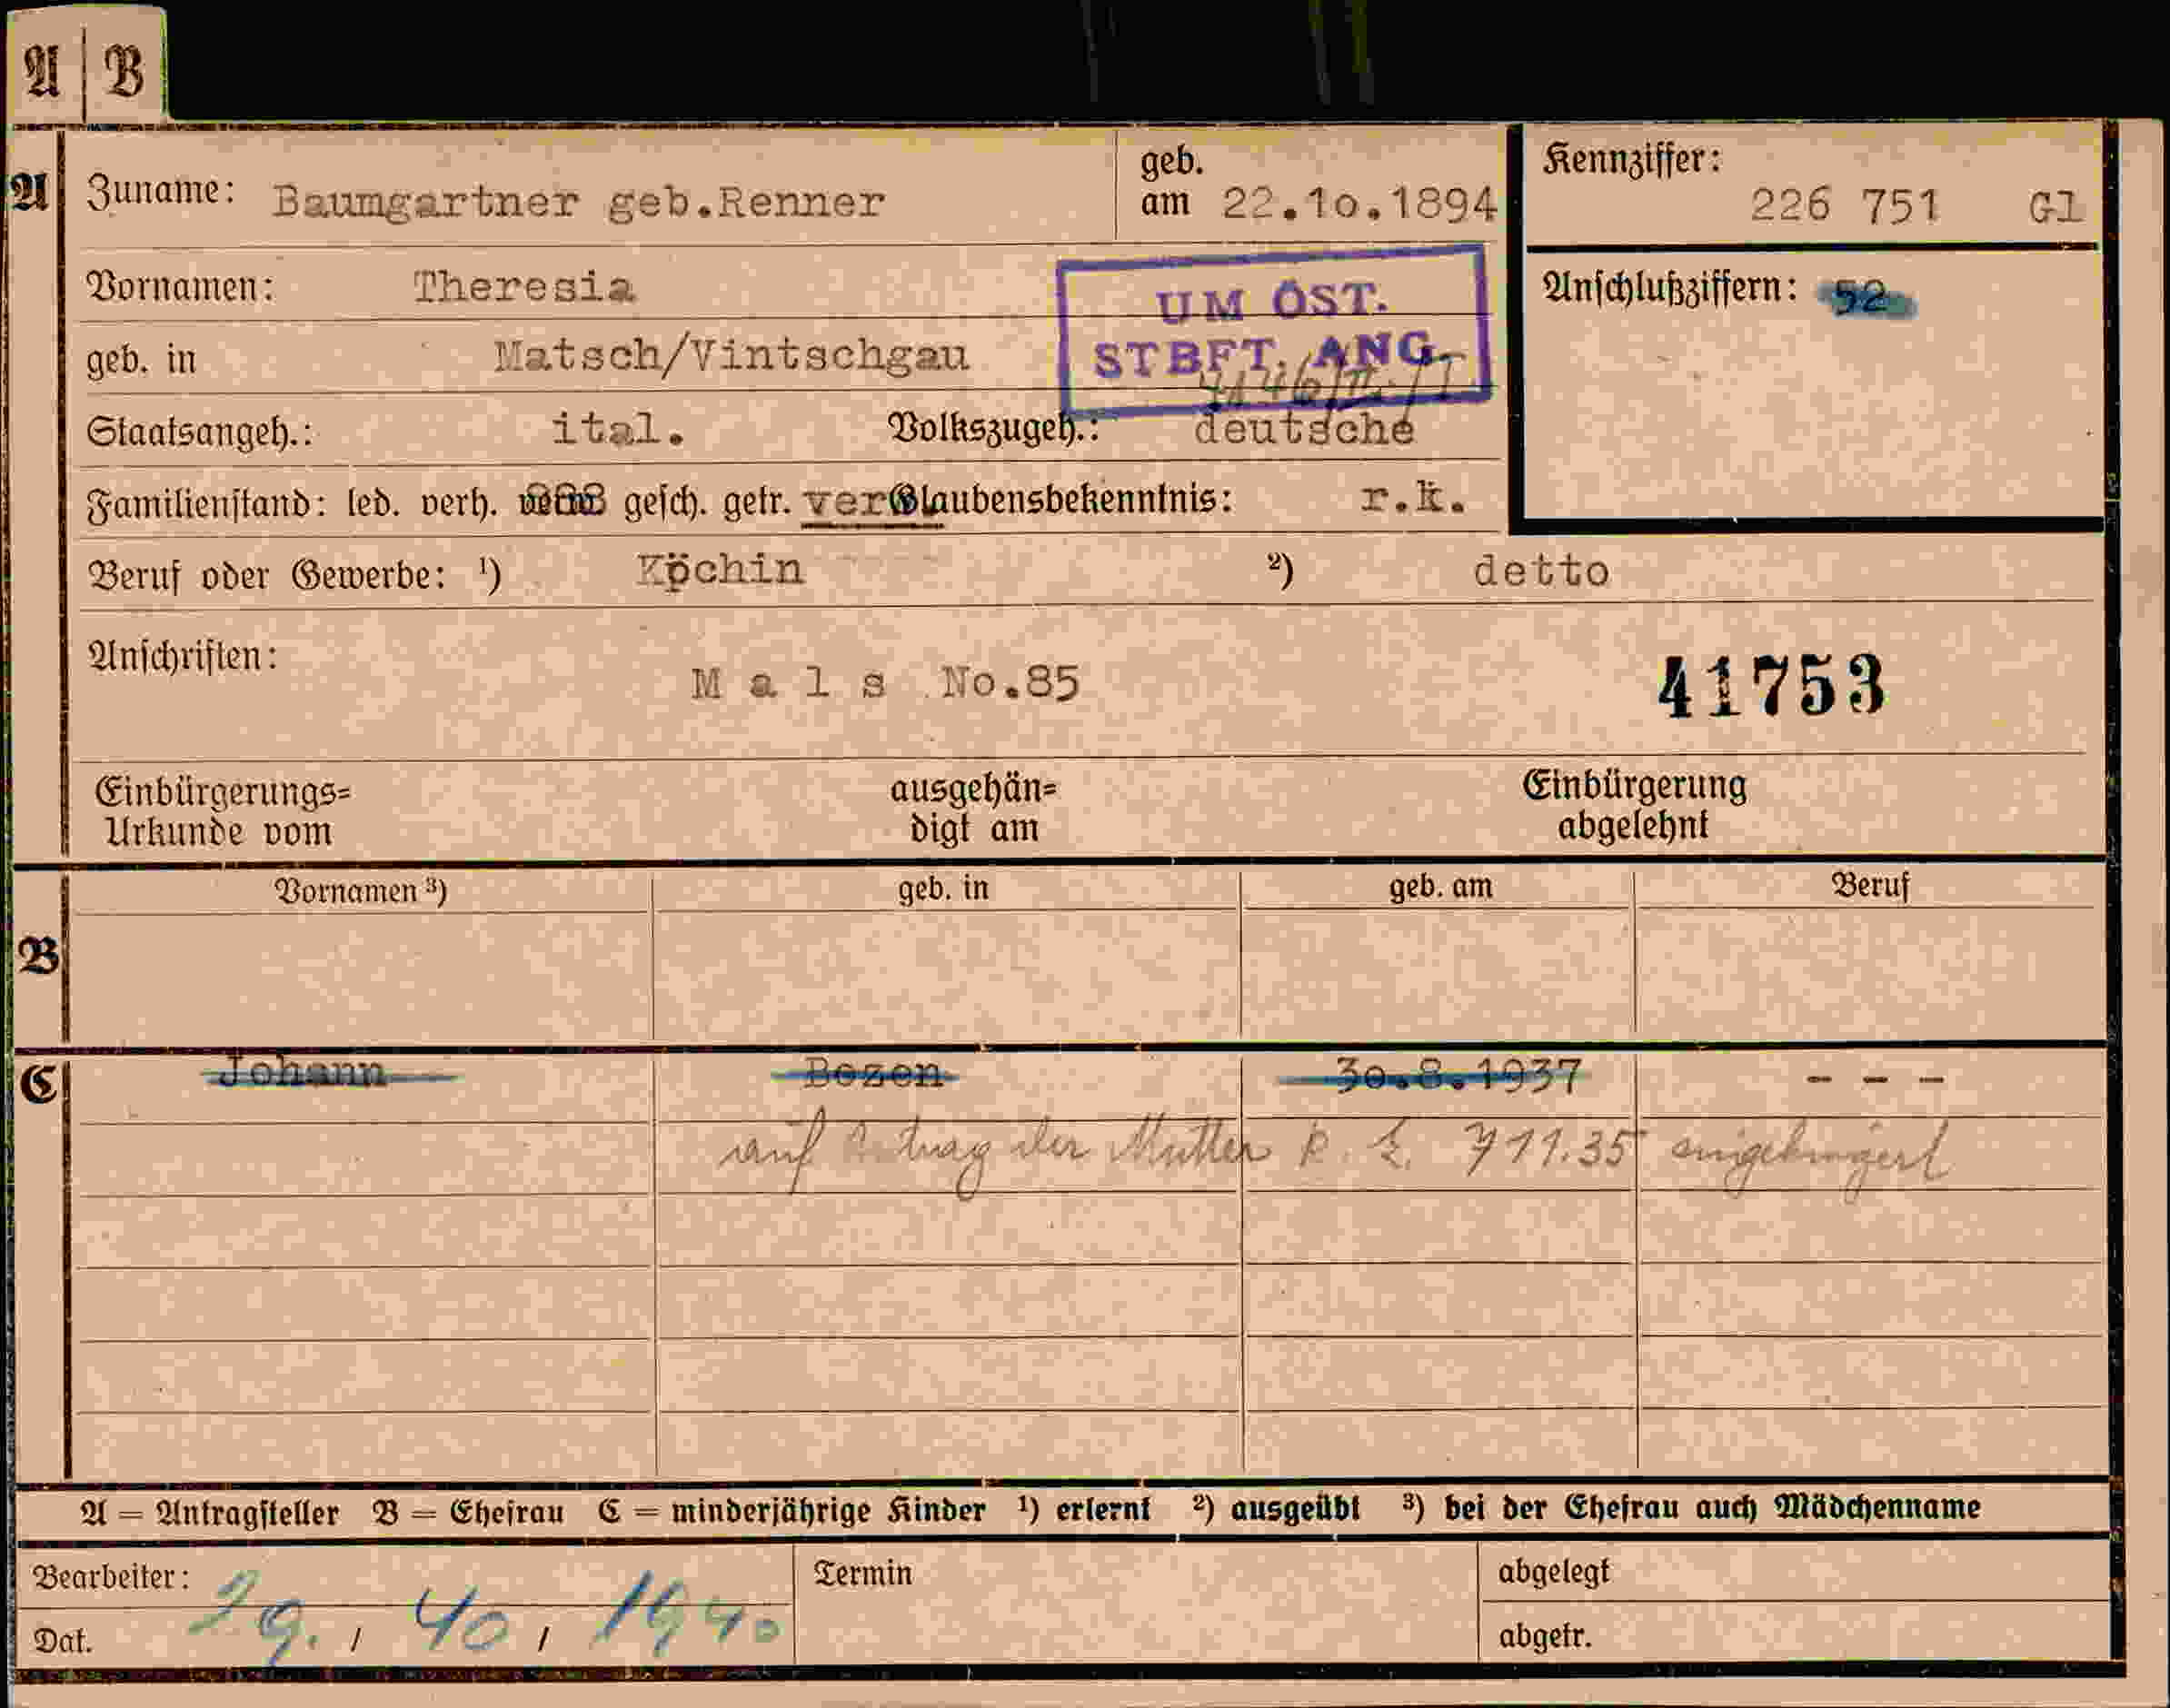 A B
A Zuname: Baumgartner geb.Renner geb. am 22.10.1894 Kennziffer: 226 751 Gl
Vornamen: Theresia UM ÖST. Anschlußziffern: 52
geb. in Matsch/Vintschgau STBFT. ANG.
Staatsangeh.: ital. Volkszugeh.: deutsche
Familienstand: led. verh. gesch. getr. ver Glaubensbekenntnis: r.k.
Beruf oder Gewerbe: ¹) Köchin ²) detto
Anschriften: Mals No.85 41753
Einbürgerungs= Urkunde vom ausgehän= digt am Einbürgerung abgelehnt
B Vornamen ³) geb. in geb. am Beruf
C Johann Bozen 30.8.1937 - - -
auf der Mutter 11.35 eingebürgert
A = Antragsteller B = Ehefrau C = minderjährige Kinder ¹) erlernt ²) ausgeübt ³) bei der Ehefrau auch Mädchenname
Bearbeiter: Termin abgelegt
Dat. 1940 abgetr.